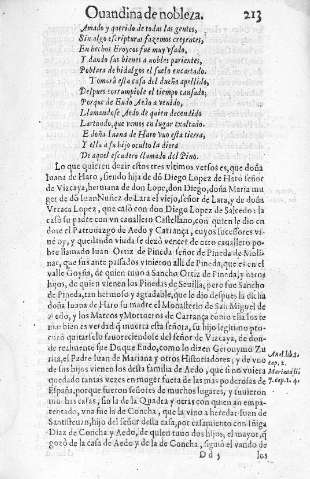 Ouandina de nobleza. 213
Amado y querido de todas las gentes,
Si no algo escripturas fazemos creyentes,
En hechos Eroycos fue muy usado,
Y dando sus bienes a nobles parientes,
Poblara de hidalgos el suelo encartado.
Tomará esta casa del dueño apellido,
Despues corrumpiole el tiempo cansado;
Porque de Eudo Aedo a venido,
Llamandose Aedo de quien decendido
Lartuado, que vemos en lugar
E doña Iuana de Haro vuo esta tierra,
Y ella a su hijo oculto la diera
De aquel escudero llamado del Pino.
Lo que quieren dezir estos tres vltimos versos es, que doña
Iuana de Haro, siendo hija de dō Diego Lopez de Haro señor
de Vizcaya, hermana de don Lope, don Diego, doña Maria mu
ger de dō Iuan Nuñez de Lara el viejo, señor de Lara, y de doña
Vrraca Lopez, que casò con don Diego Lopez de Salcedo: la
casò su padre con vn cauallero Castellano, con quien le dio en
dote el Patronazgo de Aedo y Carrança, cuyos successores vi-
ue oy, y quedando viuda se dezò vencer de otro cauallero po-
bre llamado Iuan Ortiz de Pineda señor de Pineda de Moli-
nar, que sus ante passados vinieron alli de Pineda, que es en el
valle Goyñs, de quien tuuo a Sancho Ortiz de Pineda, y otros
hijos, de quien vienen los Pinedas de Seuilla, pero fue Sancho
de Pineda, tan hermoso y agradable, que le dio despues la dicha
doña Iuana de Haro su madre el Monasterio de San Miguel de
Aedo, y los Marcos y Morueros de Carrança como ella los te
nia: bien es verdad q̄ muerta esta señora, su hijo legitimo pro-
curò quitarselo fauoreciendole el señor de Vizcaya, de don-
de realmente fue Duque Eudo, como lo dizen Geronymo Zu
rita, el Padre Iuan de Mariana y otros Historiadores; y de vno
de sus hijos vienen los desta familia de Aedo, que si no vuiera
quedado tantas vezes en muger fuera de las mas poderosas de
España, porque fueron señores de muchos lugares, y tuuieron
muchas casas, sin la de la Quadra y otras con quien an empa-
rentado, vna fue la de Concha, que la vino a heredar Iuan de
Santisteuan, hijo del señor desta casa, por casamiento con Iñiga
Diaz de Concha y Aedo, de quien tuuo dos hijos, el mayor, q̄
gozò de la casa de Aedo y de la de Concha, siguiò el vando de
lib. 2.
cap. 2.
Mariana li
7. cap. 2. 4.
D d 3 los